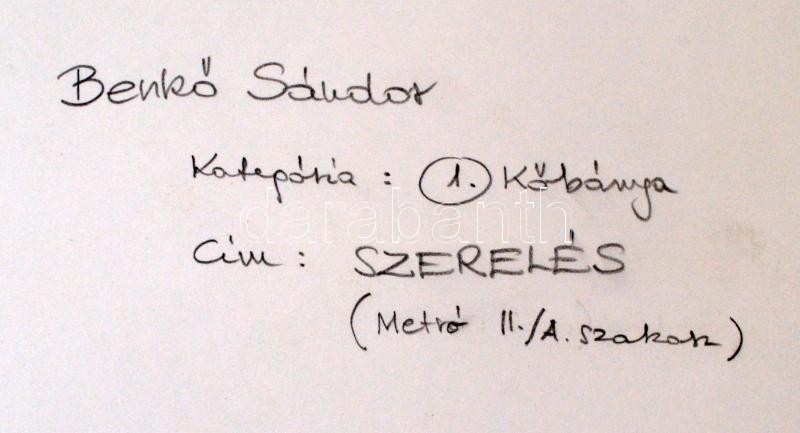 Benkő Sándor
Kategória : 1. Kőbánya
darabanth
Cím : SZERELÉS
(Metró II./A. szakasz)